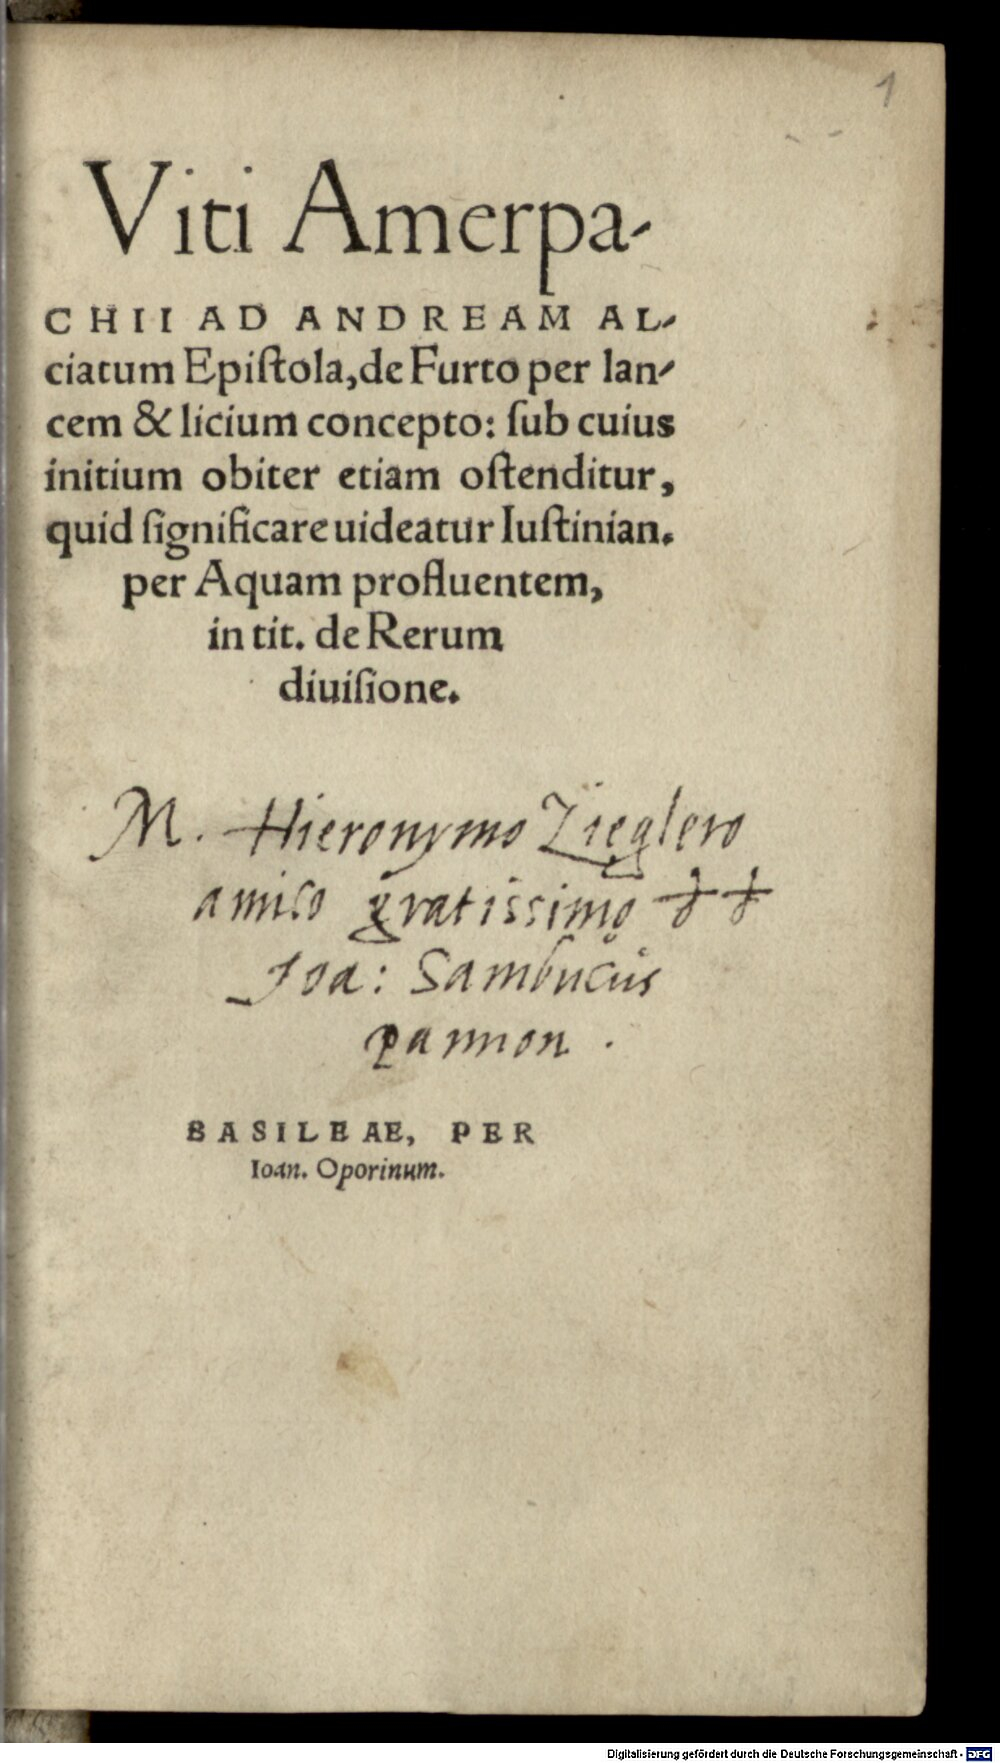 1
Viti Amerpa-
CHII AD ANDREAM AL-
ciatum Epiſtola, de Furto per lan-
cem & licium concepto: ſub cuius
initium obiter etiam oſtenditur,
quid ſignificare uideatur Iuſtinian.
per Aquam profluentem,
in tit. de Rerum
diuiſione.
M. Hieronymo Zieglero
amico gratissimo
Ioa: Sambucus
pannon.
BASILEAE, PER
Ioan. Oporinum.
Digitalisierung gefördert durch die Deutsche Forschungsgemeinschaft - DFG